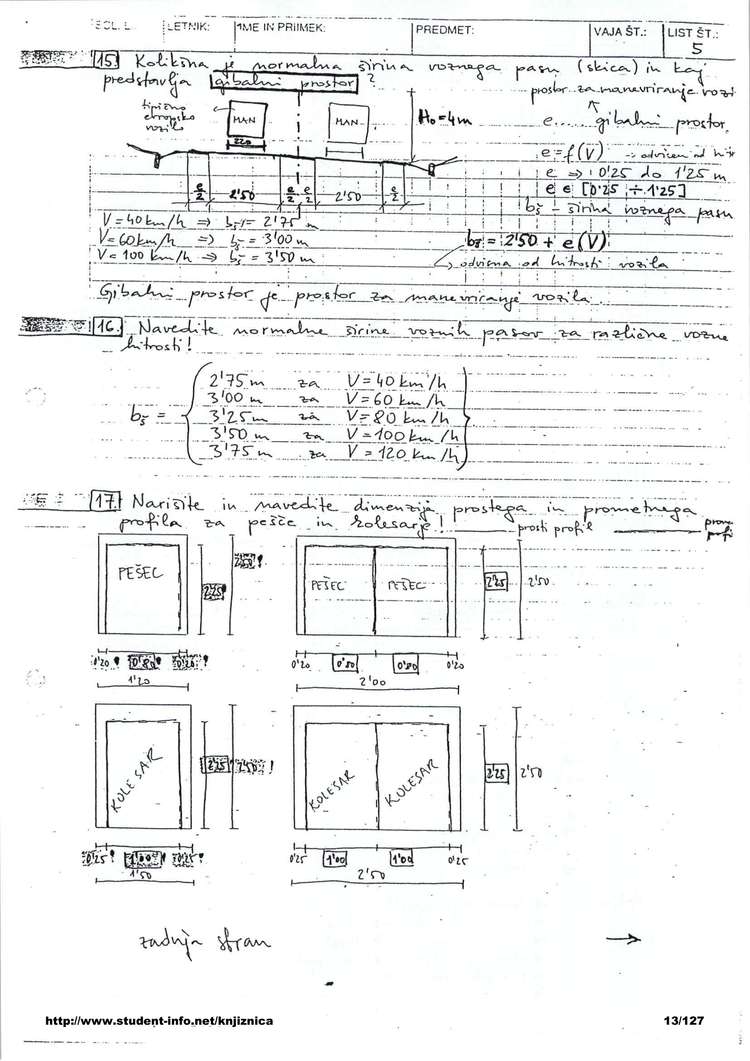 LETNIK: IME IN PRIIMEK: PREDMET: VAJA ŠT.: LIST ŠT.:
5
15. Kolikšna je normalna širina voznega pasu (skica) in kaj
predstavlja gibalni prostor?
prostor za manevriranje vozi
tipično
evropsko
vozilo
MAN
MAN
H₀ = 4m
220
e..... gibalni prostor
e = f(V) → odvisen od hitr
e ⇒ 0'25 do 1'25 m
e ∈ [0'25 ÷ 1'25]
e/2 2'50 e/2 e/2 2'50 e/2
bš - širina voznega pasu
V = 40 km/h ⇒ bš = 2'75 m
V = 60 km/h ⇒ bš = 3'00 m
V = 100 km/h ⇒ bš = 3'50 m
bš = 2'50 + e(V)
odvisna od hitrosti vozila
Gibalni prostor je prostor za manevriranje vozila
16. Navedite normalne širine voznih pasov za različne vozne
hitrosti!
bš =
2'75 m za V = 40 km/h
3'00 m za V = 60 km/h
3'25 m za V = 80 km/h
3'50 m za V = 100 km/h
3'75 m za V = 120 km/h
17. Narišite in navedite dimenzije prostega in prometnega
profila za pešce in kolesarje!
prosti profil
PEŠEC
2'25!
2'50!
PEŠEC PEŠEC
2'25 2'50
0'20! 0'80! 0'20!
1'20
0'20 0'80 0'80 0'20
2'00
KOLESAR
2'25 2'50!
KOLESAR KOLESAR
2'25 2'50
0'25! 1'00! 0'25!
1'50
0'25 1'00 1'00 0'25
2'50
zadnja stran →
http://www.student-info.net/knjiznica 13/127